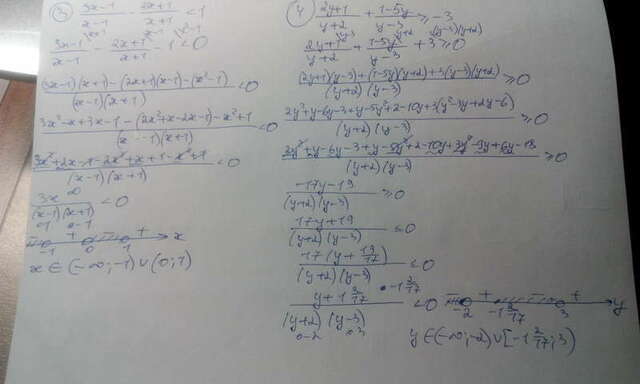 3) (3x-1)/(x-1) - (2x+1)/(x+1) < 1
(3x-1)/(x-1) - (2x+1)/(x+1) - 1 < 0
((3x-1)(x+1) - (2x+1)(x-1) - (x²-1))/((x-1)(x+1)) < 0
(3x²-x+3x-1 - (2x²+x-2x-1) - x²+1)/((x-1)(x+1)) < 0
(3x²+2x-1-2x²+x+1-x²+1)/((x-1)(x+1)) < 0
3x/((x-1)(x+1)) < 0
- + - + x
-1 0 1
x ∈ (-∞; -1) ∪ (0; 1)
4) (2y+1)/(y+2) + (1-5y)/(y-3) ≥ -3
(2y+1)/(y+2) + (1-5y)/(y-3) + 3 ≥ 0
((2y+1)(y-3) + (1-5y)(y+2) + 3(y-3)(y+2))/((y+2)(y-3)) ≥ 0
(2y²+y-6y-3+y-5y²+2-10y+3(y²-3y+2y-6))/((y+2)(y-3)) ≥ 0
(2y²+y-6y-3+y-5y²+2-10y+3y²-9y+6y-18)/((y+2)(y-3)) ≥ 0
(-17y-19)/((y+2)(y-3)) ≥ 0
(17y+19)/((y+2)(y-3)) ≤ 0
17(y+19/17)/((y+2)(y-3)) ≤ 0
(y+1 2/17)/((y+2)(y-3)) ≤ 0
- + - + y
-2 -1 2/17 3
y ∈ (-∞; -2) ∪ [-1 2/17; 3)